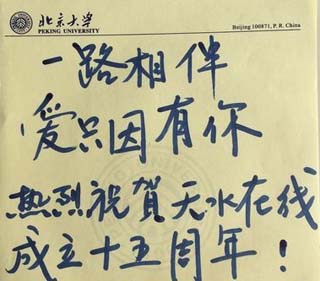 北京大学
PEKING UNIVERSITY
Beijing 100871, P. R. China
一路相伴
爱只因有你
热烈祝賀天水在线
成立十五周年！